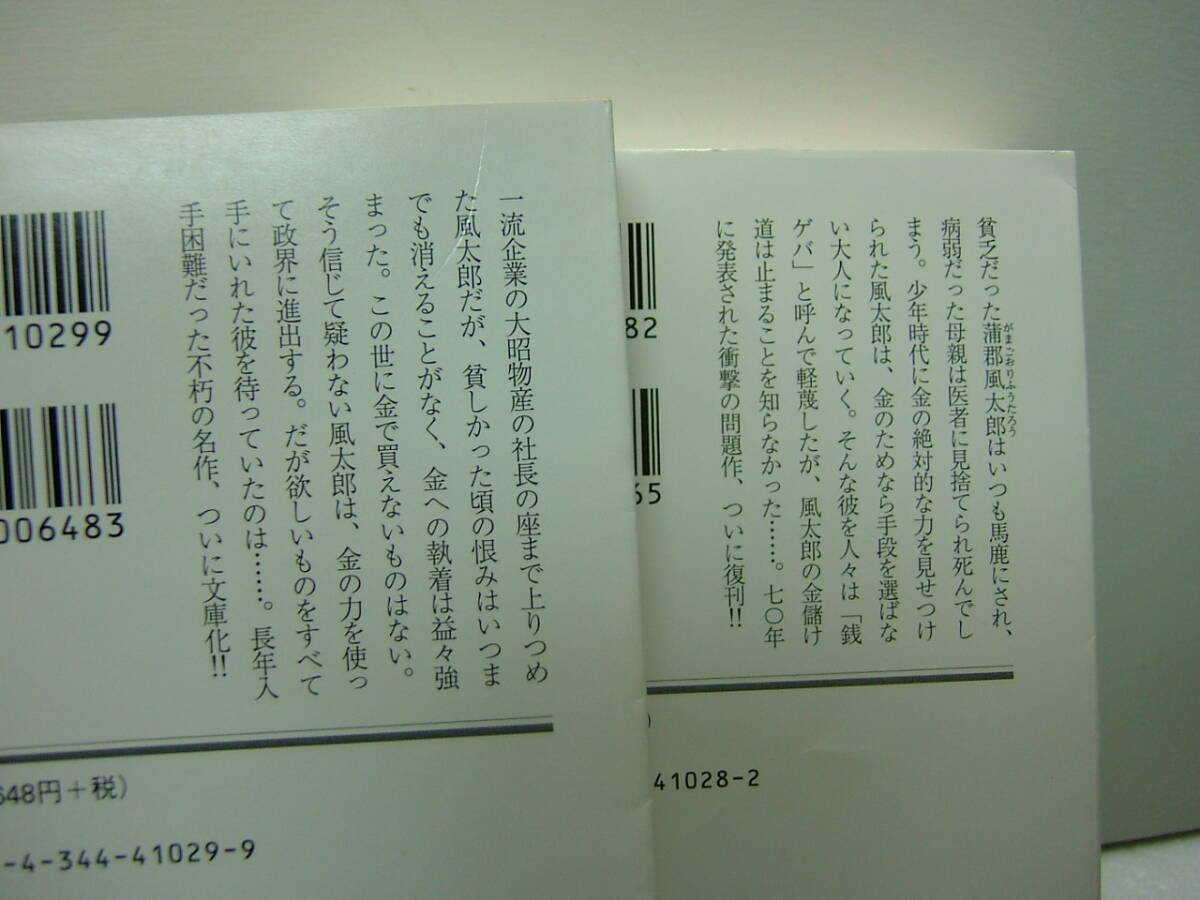 貧乏だった蒲郡風太郎はいつも馬鹿にされ、
がまごおりふうたろう
病弱だった母親は医者に見捨てられ死んでし
まう。少年時代に金の絶対的な力を見せつけ
られた風太郎は、金のためなら手段を選ばな
い大人になっていく。そんな彼を人々は「銭
ゲバ」と呼んで軽蔑したが、風太郎の金儲け
道は止まることを知らなかった……。七〇年
に発表された衝撃の問題作、ついに復刊!!
82
65
)
41028-2
一流企業の大昭物産の社長の座まで上りつめ
た風太郎だが、貧しかった頃の恨みはいつま
でも消えることがなく、金への執着は益々強
まった。この世に金で買えないものはない。
そう信じて疑わない風太郎は、金の力を使っ
て政界に進出する。だが欲しいものをすべて
手にいれた彼を待っていたのは……。長年入
手困難だった不朽の名作、ついに文庫化!!
10299
006483
648円+税)
-4-344-41029-9